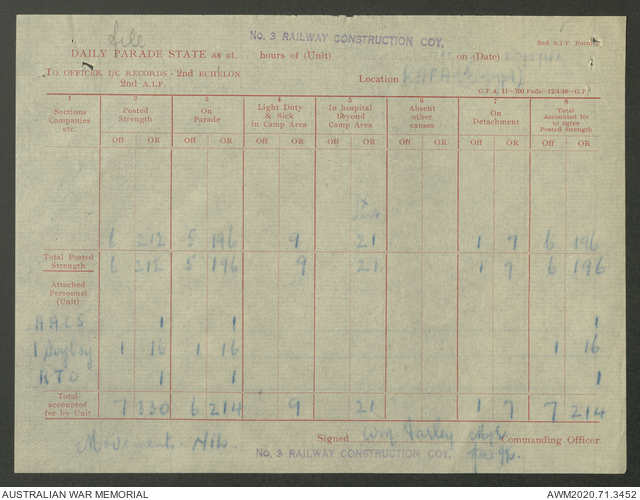 file
No. 3 RAILWAY CONSTRUCTION COY.
2nd A.I.F. Form
DAILY PARADE STATE as at hours of (Unit) on (Date)
TO OFFICER I/C RECORDS - 2nd ECHELON
2nd A.I.F.
Location
G.P.A. 11—700 Pads—12/4/40—G.P.
1 2 3 4 5 6 7 8
Sections Companies etc. Posted Strength On Parade Light Duty & Sick in Camp Area In hospital beyond Camp Area Absent other causes On Detachment Total accounted for to agree Posted strength
Off OR Off OR Off OR Off OR Off OR Off OR Off OR
6 212 5 196 9 21 1 7 6 196
Total Posted Strength 6 212 5 196 9 21 1 7 6 196
Attached Personnel (Unit)
AACS 1 1 1
1 16 1 16 1 16
RTO 1 1 1
Total accounted for by Unit 7 230 6 214 9 21 1 7 7 214
Movements - Nil
Signed Wm Farley Commanding Officer
No. 3 RAILWAY CONSTRUCTION COY.
AUSTRALIAN WAR MEMORIAL AWM2020.71.3452